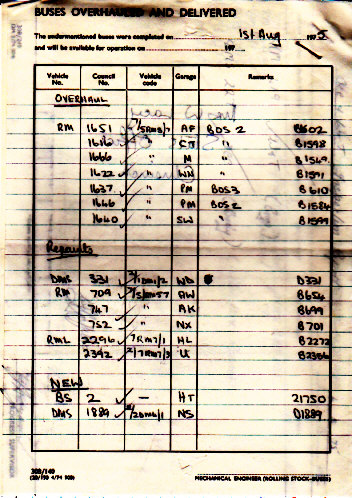 BUSES OVERHAULED AND DELIVERED
The undermentioned buses were completed on 1st Aug 1975
and will be available for operation on 197
Vehicle No. Council No. Vehicle code Garage Remarks
OVERHAUL
RM 1651 AF BOS 2 B1602
1616 " " B1598
1666 " M " B1549
1622 " WN " B1591
1637 " PM BOS3 B1610
1646 " PM BOS2 B1584
1640 " SW " B1599
Repaints
DMS 331 ND D331
RM 709 AW B654
747 " AK B699
752 " NX B701
RML 2296 7RM7/1 HL B2272
2342 7RM7/3 U B2356
NEW
BS 2 — HT 21750
DMS 1889 NS D1889
308/149
MECHANICAL ENGINEER (ROLLING STOCK-BUSES)